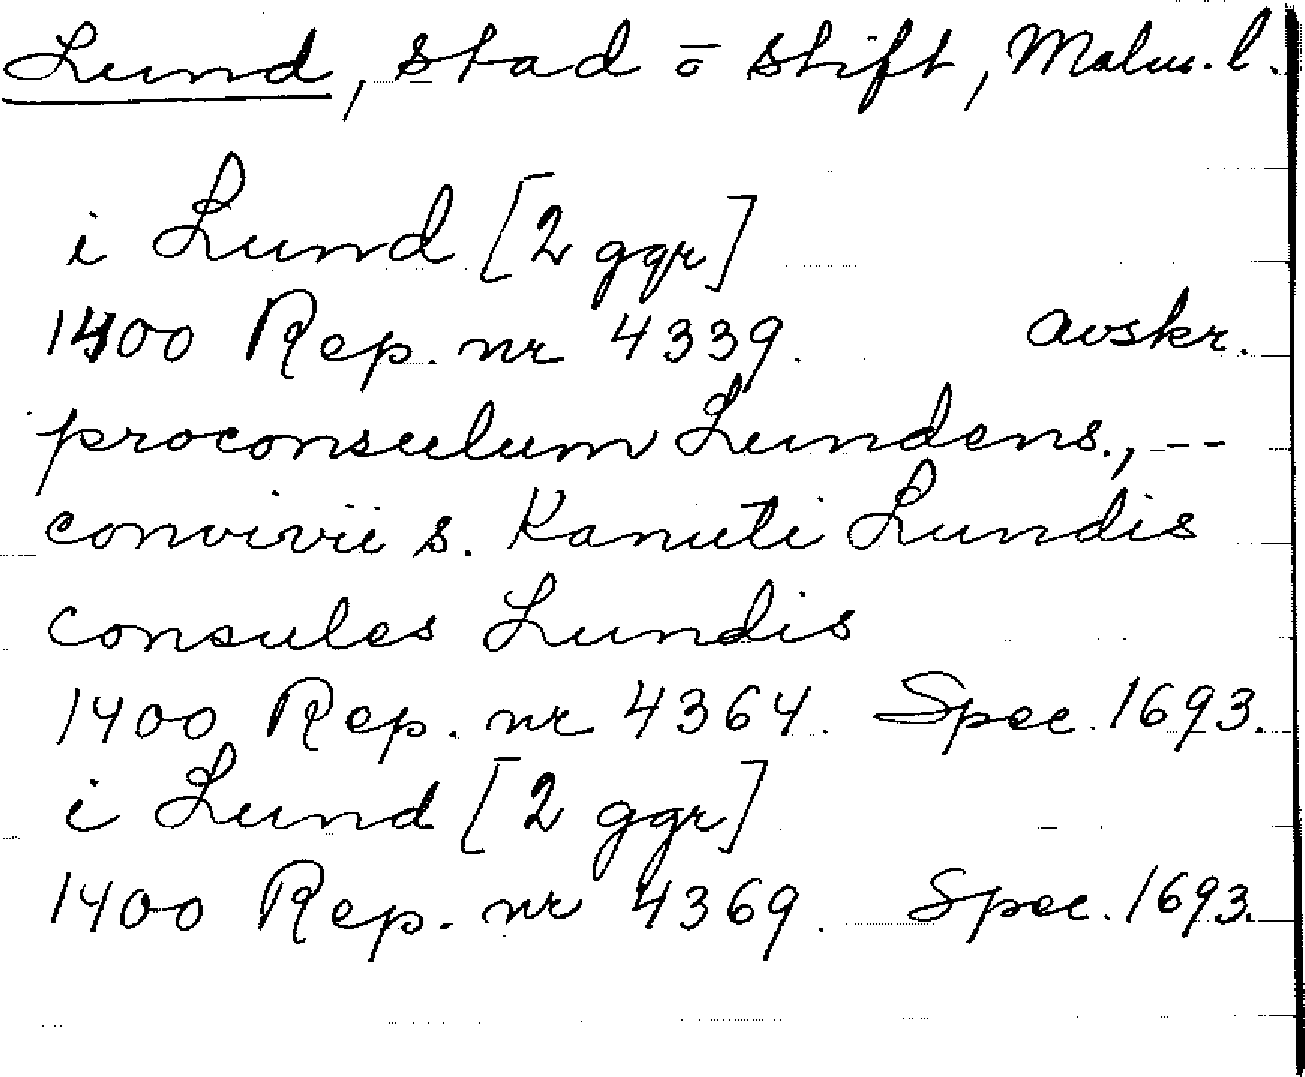 Lund, stad o stift, Malm. l.
i Lund [2 ggr]
1400 Rep. nr 4339. avskr.
proconsulum Lundens., ---
convivii s. Kanuti Lundis
consules Lundis
1400 Rep. nr 4364. Spec. 1693.
i Lund [2 ggr]
1400 Rep. nr 4369. Spec. 1693.